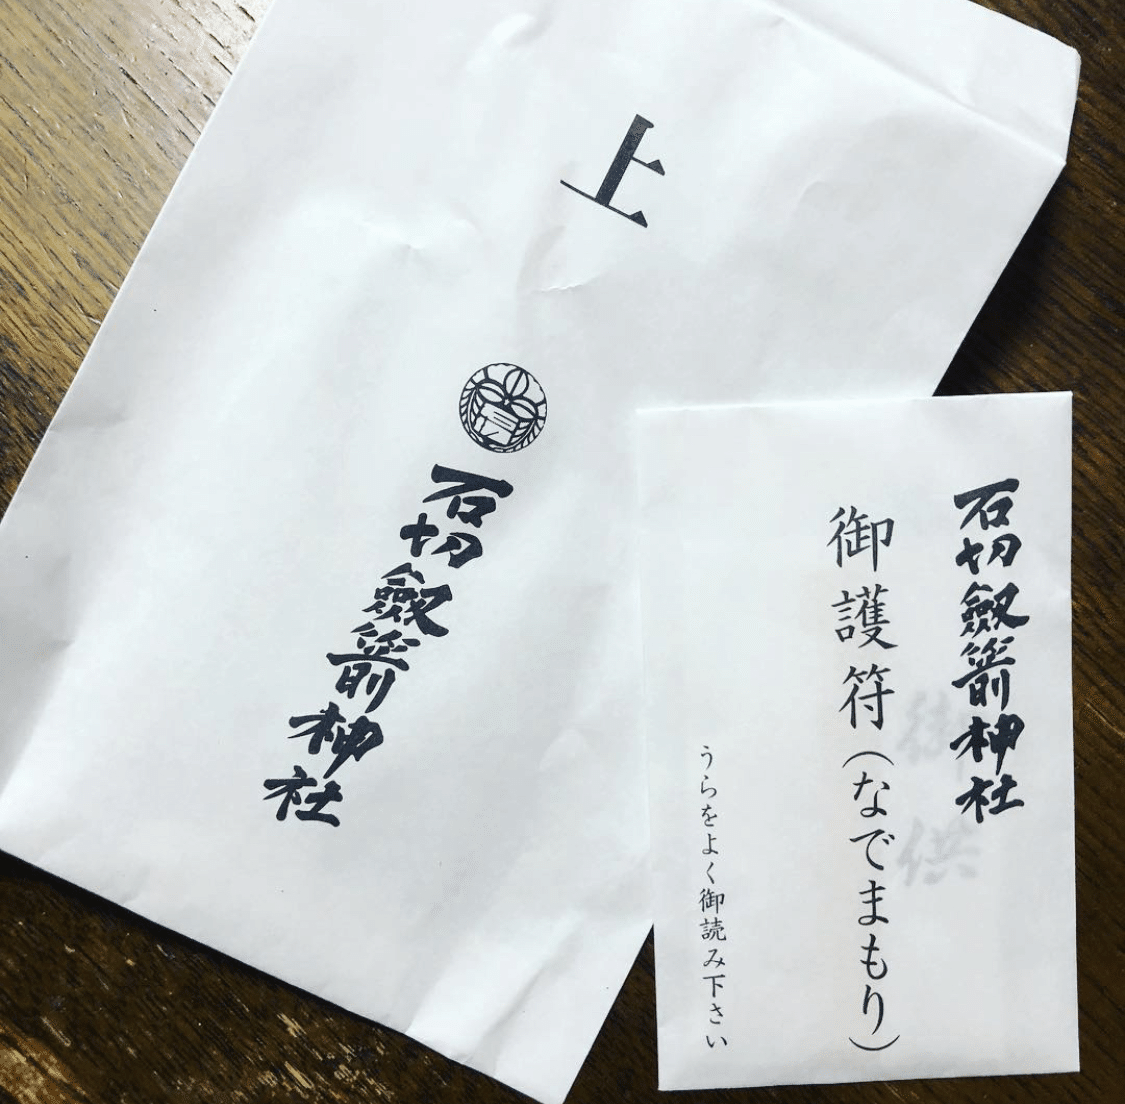 上
石切劔箭神社
石切劔箭神社
御護符(なでまもり)
うらをよく御読み下さい
御供